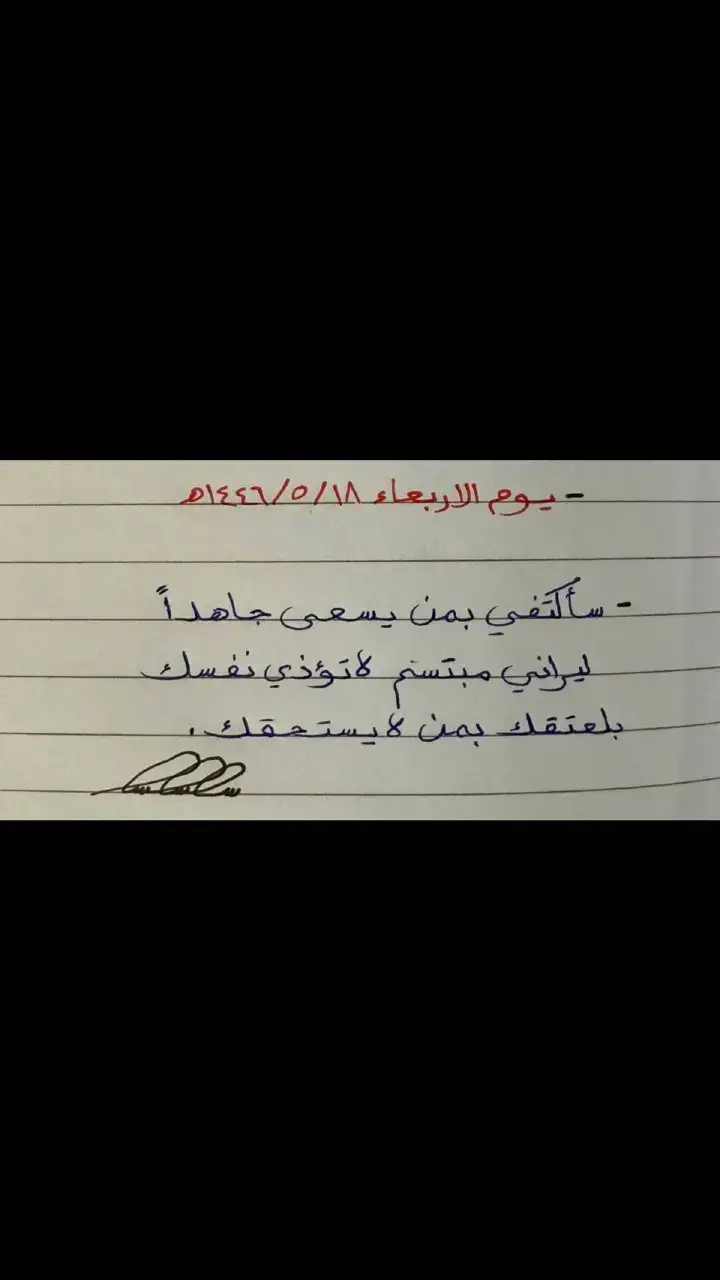 - يوم الاربعاء ١٨/٥/١٤٤٦ه
- سأكتفي بمن يسعى جاهداً
ليراني مبتسم لا تؤذي نفسك
بلعتقك بمن لا يستحقك.